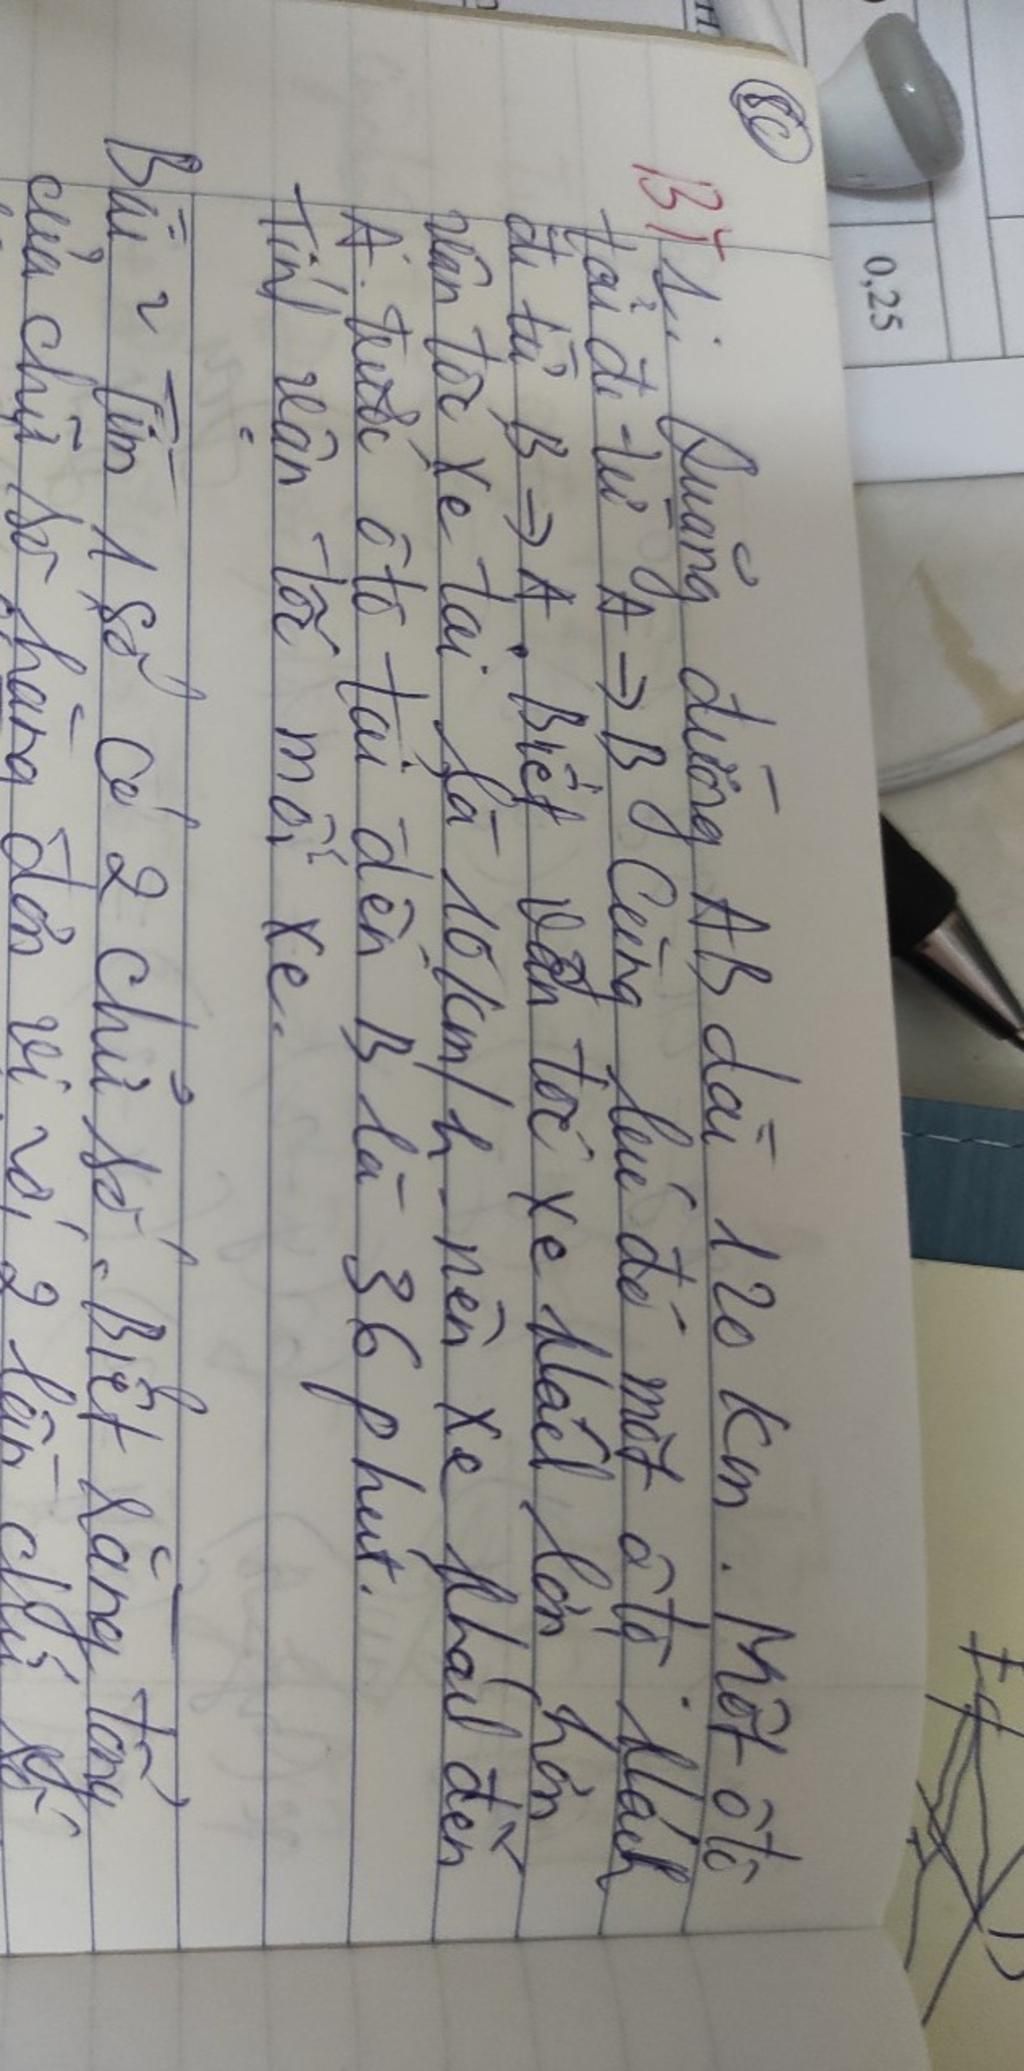 80
BT 1: Quãng đường AB dài 120 Km. Một ôtô
tải đi từ A → B Cùng lúc đó một ôtô khách
đi từ B → A. Biết vận tốc xe khách lớn hơn
vận tốc xe tải là 10 km/h nên xe khách đến
A trước ôtô tải đến B là 36 phút.
Tính vận tốc mỗi xe.
Bài 2 Tìm 1 số có 2 chữ số. Biết rằng tổng
của chữ số hàng đơn vị và 2 lần chữ số
0,25